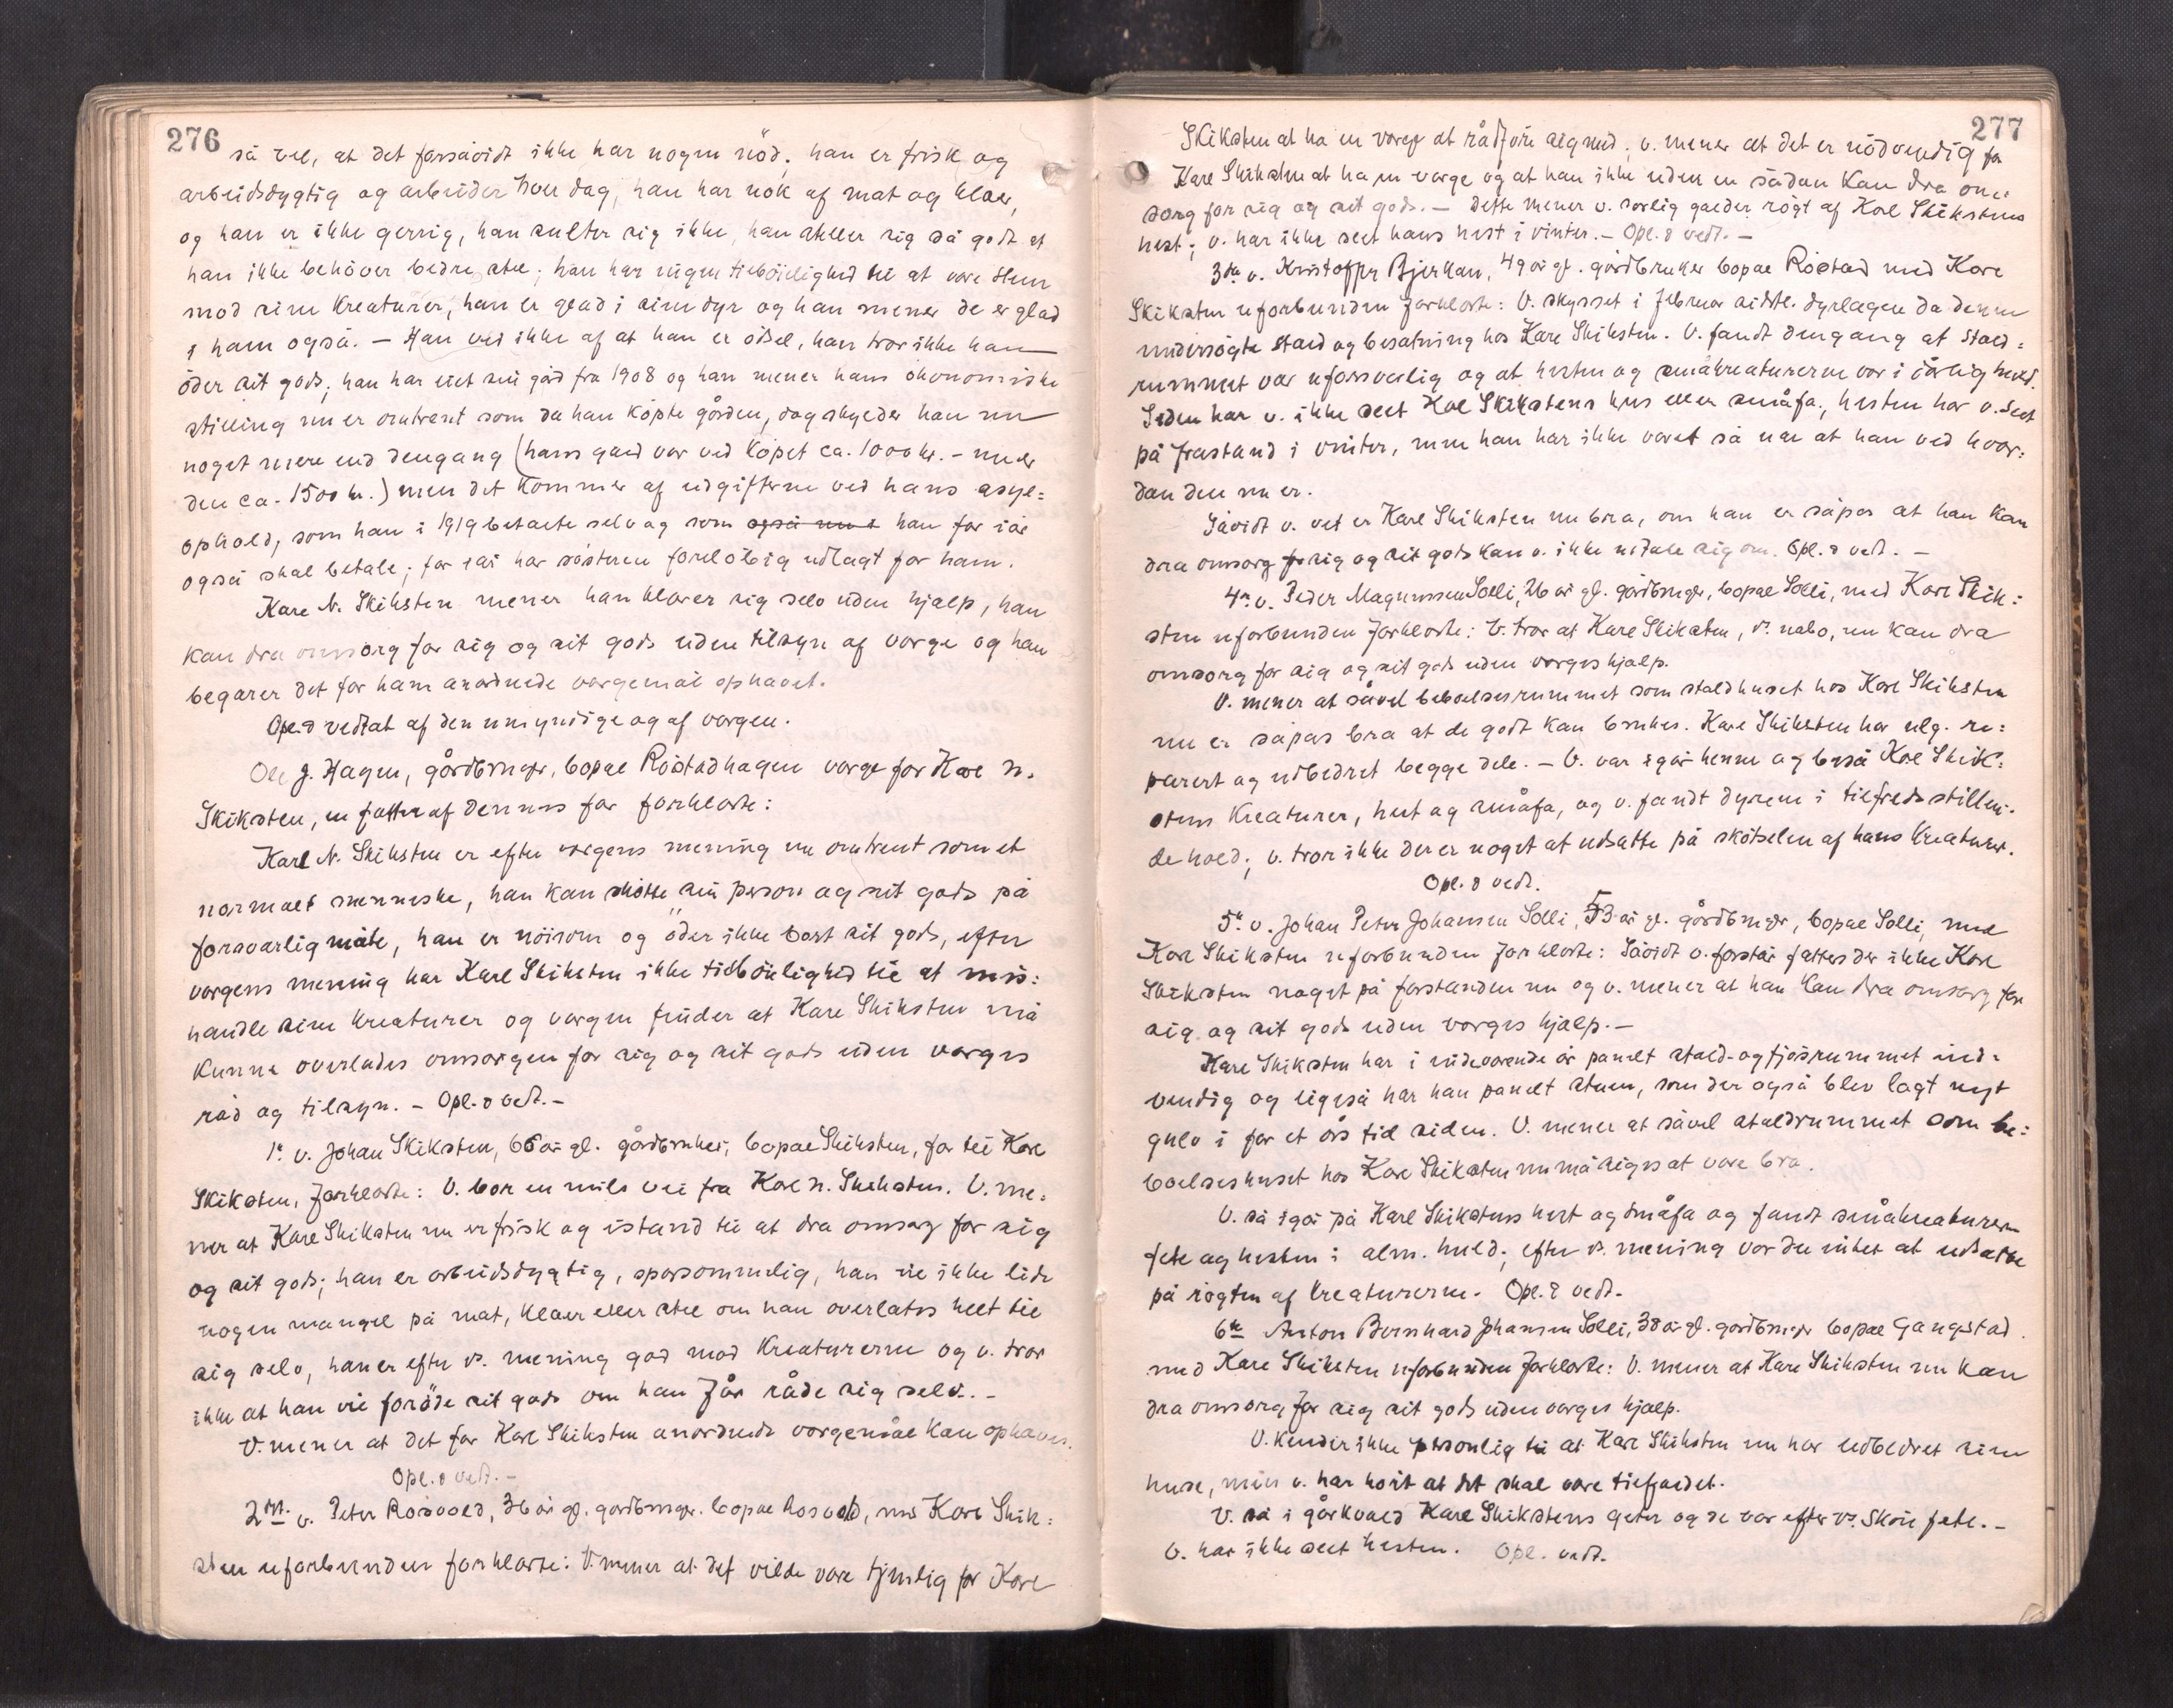 276
så vel, at det forsåvidt ikke har nogen nöd; han er frisk og
arbeidsdygtig og arbeider hver dag, han har nok af mat og klær,
og han er ikke gerrig, han sulter sig ikke, han steller sig så godt at
han ikke behöver bedre stel; han har ingen tilböielighed til at være slem
mod sine kreaturer, han er glad i sine dyr og han mener de er glad
i ham også. – Han ved ikke af at han er ödsel, han tror ikke han
öder sit gods; han har eiet sin gård fra 1908 og han mener hans ökonomiske
stilling nu er omtrent som da han köpte gården, dog skylder han nu
noget mere end dengang (hans gjæld var ved köpet ca. 1000 kr. – nu er
den ca. 1500 kr.) men det kommer af udgifterne ved hans asyl=
ophold, som han i 1919 betalte selv og som også han for iår
også skal betale; for iår har sösteren forelöbig udlagt for ham.
Karl N. Skiksten mener han klarer sig selv uden hjælp, han
kan dra omsorg for sig og sit gods uden tilsyn af værge og han
begærer det for ham anordnede værgemål ophævet.
Opl. & vedtat af den umyndige og af værgen.
Ole J. Hagen, gårdbruger, bopæl Röstadhagen værge for Karl N.
Skiksten, en fætter af dennes far forklarte:
Karl N. Skiksten er efter værgens mening nu omtrent som et
normalt menneske, han kan skötte sin person og sit gods på
forsvarlig måte, han er nöisom og öder ikke bort sit gods, efter
værgens mening har Karl Skiksten ikke tilböielighed til at mis=
handle sine kreaturer og værgen finder at Karl Skiksten må
kunne overlades omsorgen for sig og sit gods uden værges
råd og tilsyn. – Opl. & vedt. –
1ste v. Johan Skiksten, 66 år gl. gårdbruker, bopæl Skiksten, far til Karl
Skiksten, forklarte: V. bor en mils vei fra Karl N. Skiksten. V. me=
ner at Karl Skiksten nu er frisk og istand til at dra omsorg for sig
og sit gods; han er arbeidsdygtig, sparsommelig, han vil ikke lide
nogen mangel på mat, klær eller stel om han overlates helt til
sig selv, han er efter vs. mening god mod kreaturerne og v. tror
ikke at han vil foröde sit gods om han får råde sig selv. –
V. mener at det for Karl Skiksten anordnede værgemål kan ophæves.
Opl. & vedt. –
2det v. Peter Rösvold, 36 år gl. gårdbruger bopæl Rosvold, med Karl Skik=
sten uforbunden forklarte: V. mener at det vilde være tjenlig for Karl
277
Skiksten at ha en værge at rådföre sig med; v. mener at det er nödvendig for
Karl Skiksten at ha en værge og at han ikke uden en sådan kan dra om=
sorg for sig og sit gods. – Dette mener v. særlig gjælder rögt af Karl Skikstens
hest; v. har ikke seet hans hest i vinter. – Opl. & vedt. –
3die v. Kristoffer Bjerkan, 49 år gl. gårdbruker bopæl Röstad med Karl
Skiksten uforbunden forklarte: V. skysset i februar sidstl. dyrlægen da denne
undersögte stald og besætning hos Karl Skiksten. V. fandt dengang at stald=
rummet var uforsvarlig og at hesten og småkreaturerne var i dårlig huld.
Siden har v. ikke seet Karl Skikstens hus eller småfæ, hesten har v. seet
på frastand i vinter, men han har ikke været så nær at han ved hvor=
dan den nu er.
Såvidt v. vet er Karl Skiksten nu bra, om han er såpas at han kan
dra omsorg for sig og sit gods kan v. ikke uttale sig om. Opl. & vedt. –
4de v. Peder Magnussen Solli, 26 år gl. gårdbruger, bopæl Solli, med Karl Skik=
sten uforbunden forklarte: V. tror at Karl Skiksten, vs. nabo, nu kan dra
omsorg for sig og sit gods uden værges hjælp.
V. mener at såvel beboelsesrummet som staldhuset hos Karl Skiksten
nu er såpas bra at de godt kan brukes. Karl Skiksten har selv re=
parert og udbedret begge dele. – V. var igår henne og beså Karl Skik=
stens kreaturer, hest og småfæ, og v. fandt dyrene i tilfredsstillen=
de hold; v. tror ikke der er noget at udsætte på skötselen af hans kreaturer.
Opl. & vedt.
5te v. Johan Peter Johansen Solli, 53 år gl. gårdbruger, bopæl Solli, med
Karl Skiksten uforbunden forklarte: Såvidt v. forstår fattes der ikke Karl
Skiksten noget på forstanden nu og v. mener at han kan dra omsorg for
sig og sit gods uden værges hjælp. –
Karl Skiksten har i indeværende år panelt stald- og fjösrummet ind=
vendig og ligeså har han panelt stuen, som der også blev lagt nyt
gulv i for et års tid siden. V. mener at såvel staldrummet som be=
boelseshuset hos Karl Skiksten nu må siges at være bra.
V. så igår på Karl Skikstens hest og småfæ og fandt småkreaturerne
fete og hesten i alm. huld; efter vs. mening var der intet at udsætte
på rögten af kreaturerne. Opl. & vedt.
6te Anton Bernhard Johansen Solli, 38 år gl. gårdbruger bopæl Gangstad
med Karl Skiksten uforbunden forklarte: V. mener at Karl Skiksten nu kan
dra omsorg for sig sit gods uden værges hjælp.
V. kender ikke personlig til at Karl Skiksten nu har udbedret sine
huse, men v. har hört at det skal være tilfældet.
V. så i går kvæld Karl Skikstens geter og de var efter vs. skön fete. –
V. har ikke seet hesten. Opl. vedt.